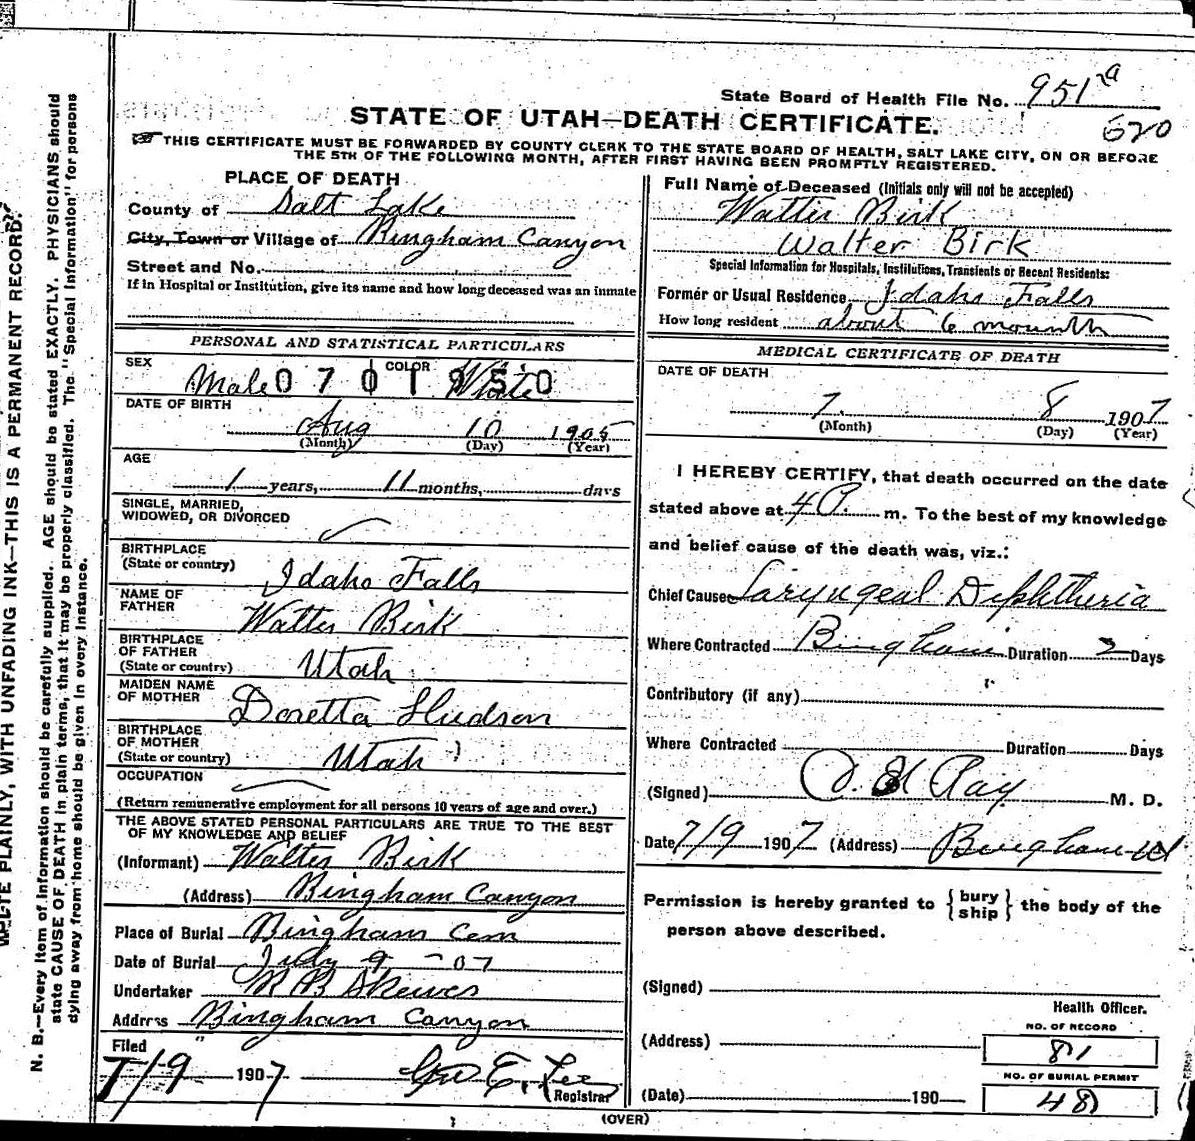 State Board of Health File No. 951 a
620
STATE OF UTAH—DEATH CERTIFICATE.
THIS CERTIFICATE MUST BE FORWARDED BY COUNTY CLERK TO THE STATE BOARD OF HEALTH, SALT LAKE CITY, ON OR BEFORE
THE 5TH OF THE FOLLOWING MONTH, AFTER FIRST HAVING BEEN PROMPTLY REGISTERED.
PLACE OF DEATH
County of Salt Lake
City, Town or Village of Bingham Canyon
Street and No.
If in Hospital or Institution, give its name and how long deceased was an inmate
PERSONAL AND STATISTICAL PARTICULARS
SEX Male 0701950 COLOR White
DATE OF BIRTH
Aug 10 1905
(Month) (Day) (Year)
AGE
1 years, 11 months, days
SINGLE, MARRIED,
WIDOWED, OR DIVORCED
BIRTHPLACE
(State or country) Idaho Falls
NAME OF
FATHER Walter Birk
BIRTHPLACE
OF FATHER
(State or country) Utah
MAIDEN NAME
OF MOTHER Doretta Hudson
BIRTHPLACE
OF MOTHER
(State or country) Utah
OCCUPATION
(Return remunerative employment for all persons 10 years of age and over.)
THE ABOVE STATED PERSONAL PARTICULARS ARE TRUE TO THE BEST
OF MY KNOWLEDGE AND BELIEF
(Informant) Walter Birk
(Address) Bingham Canyon
Place of Burial Bingham Cem
Date of Burial July 9 - 07
Undertaker M B Skewes
Address Bingham Canyon
Filed
7/9 1907 Geo E. Lee
Registrar
Full Name of Deceased (Initials only will not be accepted)
Walter Birk
Walter Birk
Special Information for Hospitals, Institutions, Transients or Recent Residents:
Former or Usual Residence Idaho Falls
How long resident about 6 mounth
MEDICAL CERTIFICATE OF DEATH
DATE OF DEATH
7 8 1907
(Month) (Day) (Year)
I HEREBY CERTIFY, that death occurred on the date
stated above at 4 P. m. To the best of my knowledge
and belief cause of the death was, viz.:
Chief Cause Laryngeal Diphtheria
Where Contracted Bingham Duration 2 Days
Contributory (if any)
Where Contracted Duration Days
(Signed) D. H Ray M. D.
Date 7/9 1907 (Address) Bingham Ut
Permission is hereby granted to { bury
ship } the body of the
person above described.
(Signed)
Health Officer.
(Address)
NO. OF RECORD
81
NO. OF BURIAL PERMIT
48
(Date) 190
(OVER)
WRITE PLAINLY, WITH UNFADING INK—THIS IS A PERMANENT RECORD.
N. B.—Every item of information should be carefully supplied. AGE should be stated EXACTLY. PHYSICIANS should
state CAUSE OF DEATH in plain terms, that it may be properly classified. The "Special Information" for persons
dying away from home should be given in every instance.